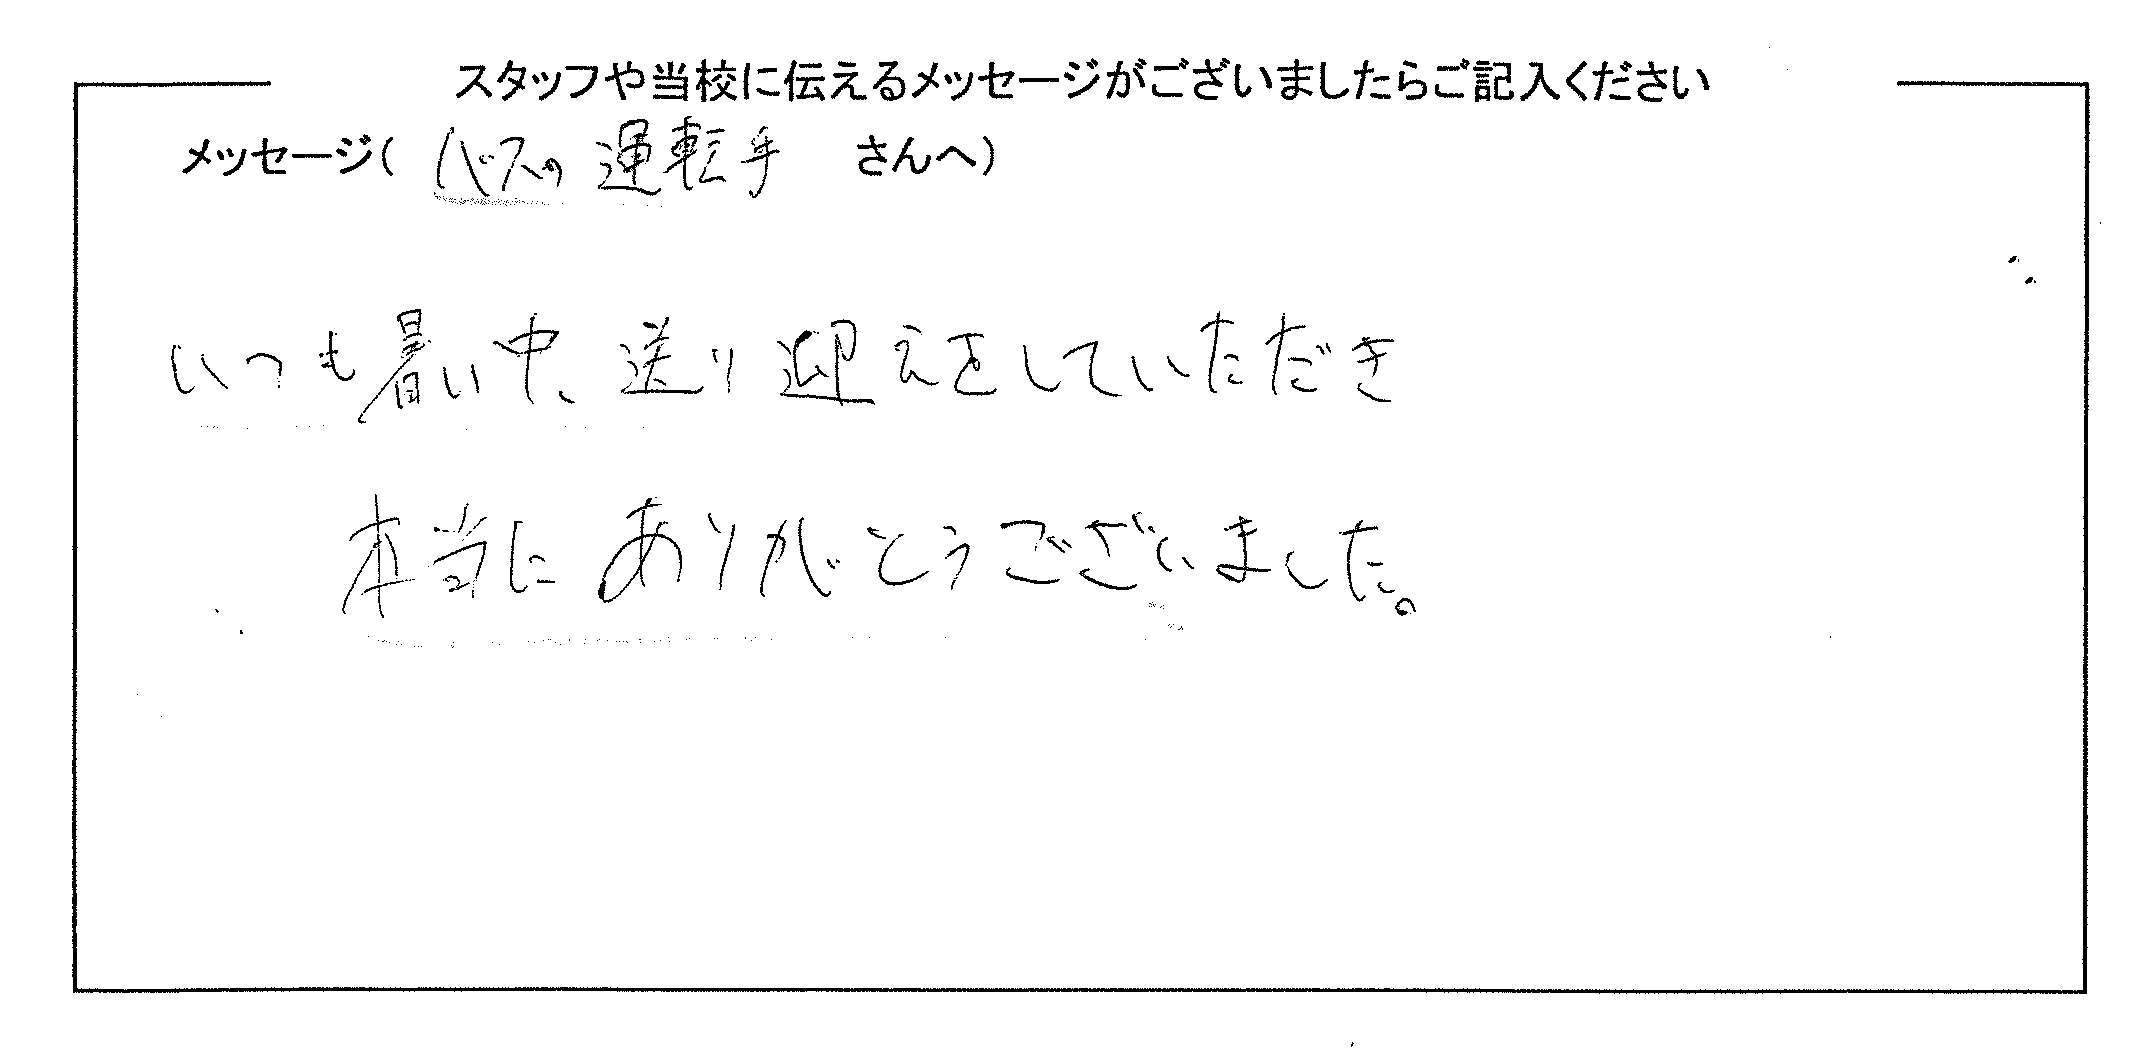 スタッフや当校に伝えるメッセージがございましたらご記入ください
メッセージ( バスの運転手 さんへ)
いつも暑い中、送り迎えをしていただき
本当にありがとうございました。